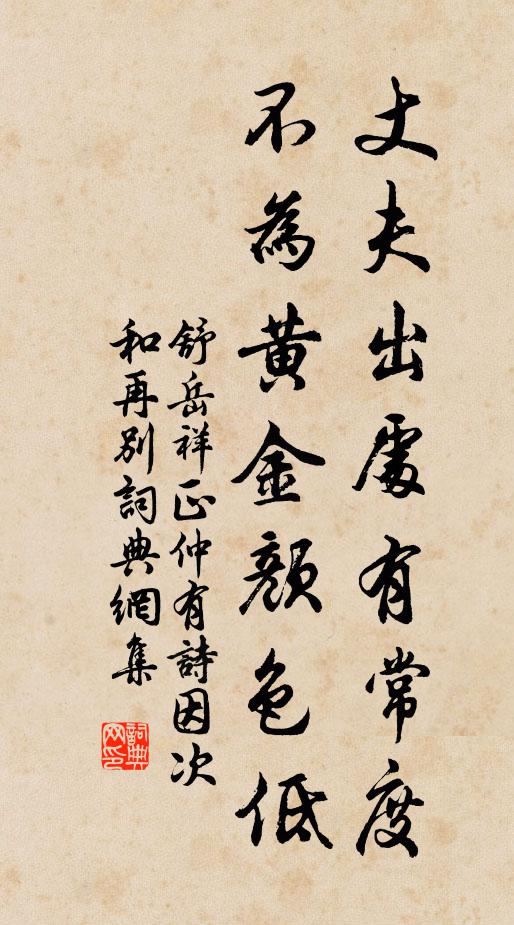 丈夫出處有常度
不為黃金顏色低
舒岳祥正仲有詩因次
和再別詞典網集
詞典网印